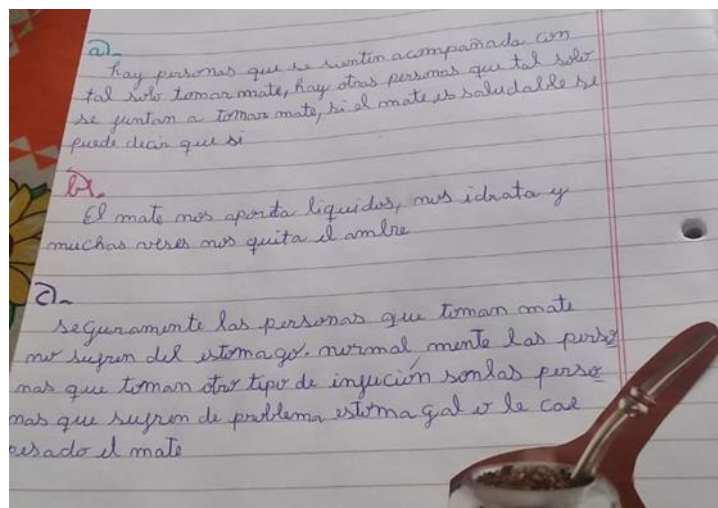 a)-
hay personas que se sienten acompañada con
tal solo tomar mate, hay otras personas que tal solo
se juntan a tomar mate, si el mate es saludable se
puede decir que si
b)-
El mate nos aporta liquidos, nos idrata y
muchas veses nos quita el ambre
c)-
seguramente las personas que toman mate
no sufren del estomago. normal mente las perso
nas que toman otro tipo de infución son las perso
nas que sufren de problema estoma gal o le cae
pesado el mate